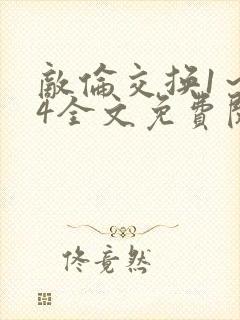 敵倫交換1～
4全文免費閱
佟竟然